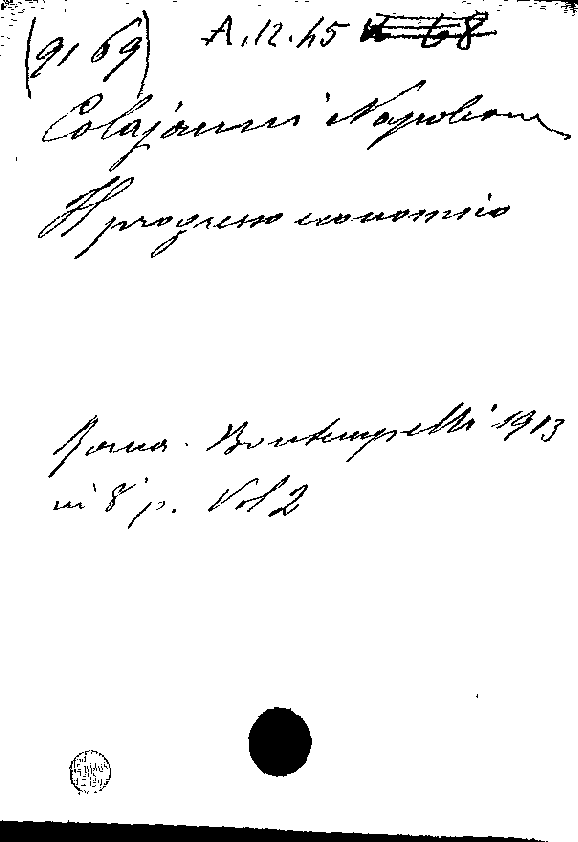 (9169) A.12.45
Colajanni Napoleone
Il progresso economico
Roma. Bontempelli 1913
in 8° p. Vol 2